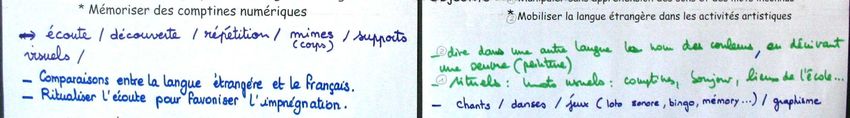 * Mémoriser des comptines numériques
⇔ écoute / découverte / répétition / mimes / supports
(corps)
visuels /
– Comparaisons entre la langue étrangère et le français.
– Ritualiser l'écoute pour favoriser l'imprégnation.
* Mobiliser la langue étrangère dans les activités artistiques
② dire dans une autre langue le nom des couleurs, en décrivant
une oeuvre (peinture)
① rituels : mots usuels : comptines, bonjour, lieux de l'école...
– chants / danses / jeux (loto sonore, bingo, mémory...) / graphisme